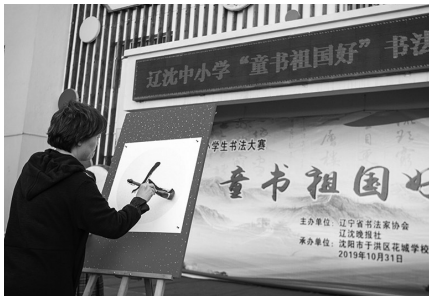 辽沈中小学“童书祖国好”书法
学生书法大赛
童书祖国好
主办单位：辽宁省书法家协会
辽沈晚报社
承办单位：沈阳市于洪区花城学校
2019年10月31日